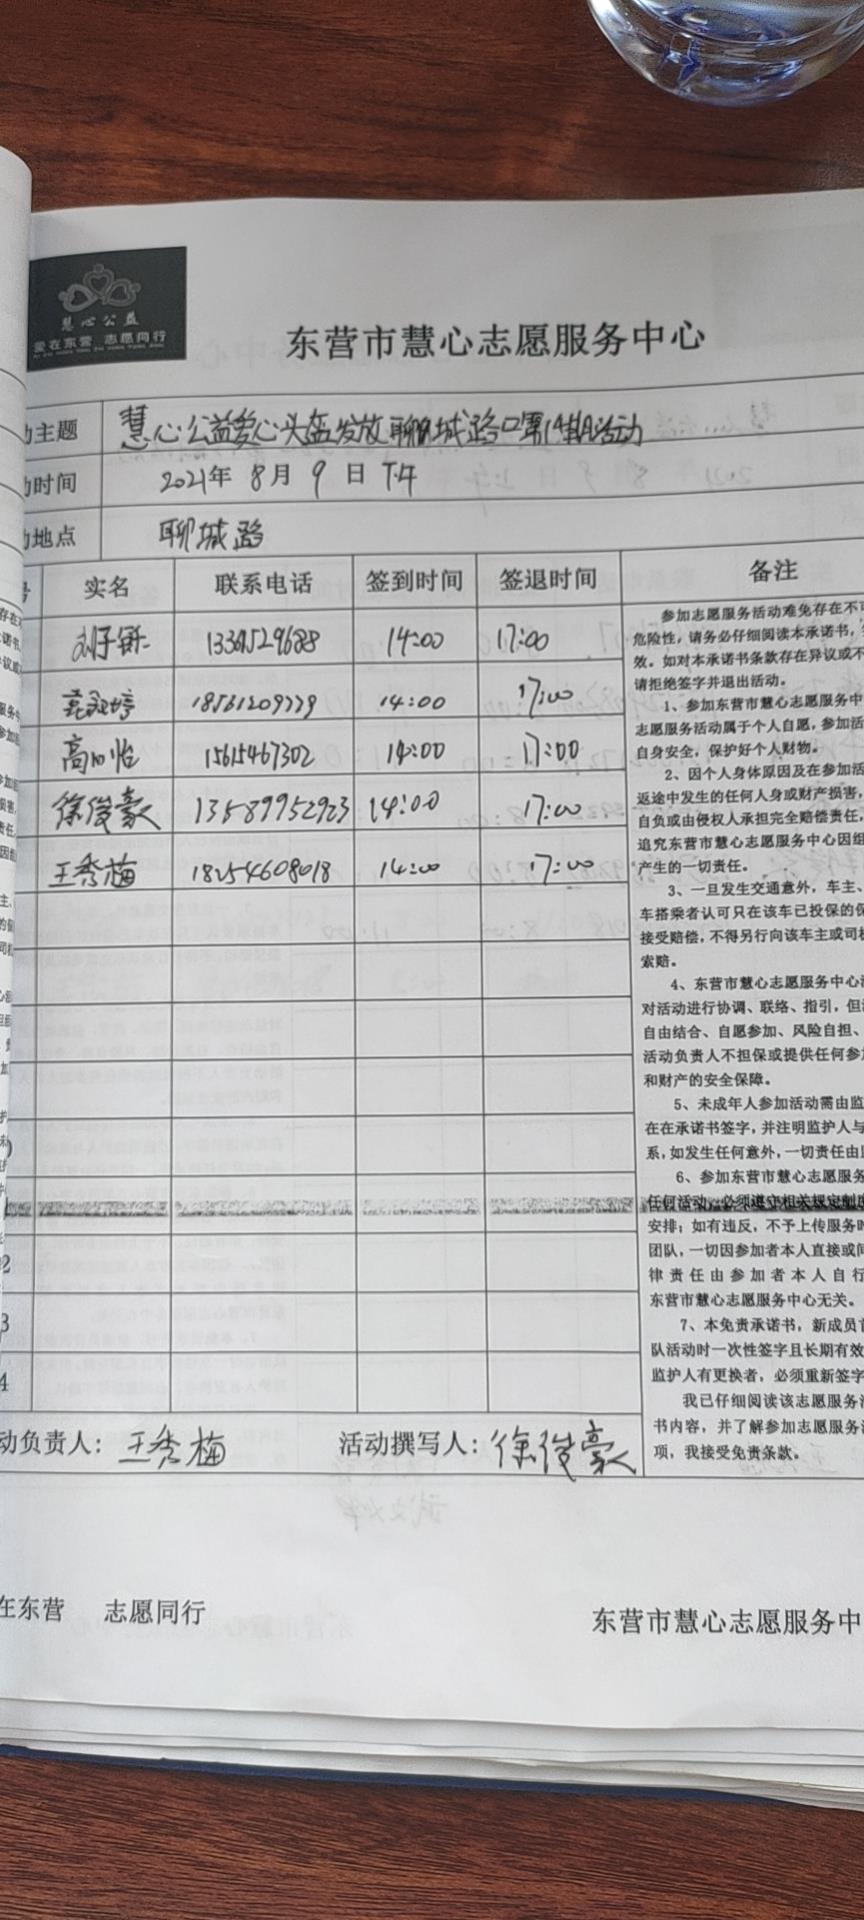 慧心公益
爱在东营 志愿同行
东营市慧心志愿服务中心
动主题 慧心公益爱心头盔发放聊城路口第14期活动
动时间 2021年 8月 9日 下午
动地点 聊城路
实名 联系电话 签到时间 签退时间 备注
14:00 17:00
18561209779 14:00 17:00
高 怡 15615467302 14:00 17:00
徐俊豪 13589952923 14:00 17:00
王秀梅 18254608018 14:00 17:00
参加志愿服务活动难免存在不可
危险性，请务必仔细阅读本承诺书，
效。如对本承诺书条款存在异议或不
请拒绝签字并退出活动。
1、参加东营市慧心志愿服务中
志愿服务活动属于个人自愿，参加活
自身安全，保护好个人财物。
2、因个人身体原因及在参加活
返途中发生的任何人身或财产损害，
自负或由侵权人承担完全赔偿责任，
追究东营市慧心志愿服务中心因组
产生的一切责任。
3、一旦发生交通意外，车主、
车搭乘者认可只在该车已投保的保
接受赔偿，不得另行向该车主或司机
索赔。
4、东营市慧心志愿服务中心
对活动进行协调、联络、指引，但
自由结合、自愿参加、风险自担、
活动负责人不担保或提供任何参加
和财产的安全保障。
5、未成年人参加活动需由监
在在承诺书签字，并注明监护人与
系，如发生任何意外，一切责任由
6、参加东营市慧心志愿服务
任何活动，必须遵守相关规定制度
安排；如有违反，不予上传服务时
团队，一切因参加者本人直接或间
律责任由参加者本人自行
东营市慧心志愿服务中心无关。
7、本免责承诺书，新成员首
队活动时一次性签字且长期有效
监护人有更换者，必须重新签字
我已仔细阅读该志愿服务活
书内容，并了解参加志愿服务活
项，我接受免责条款。
2
3
4
动负责人：王秀梅 活动撰写人：徐俊豪
在东营 志愿同行 东营市慧心志愿服务中